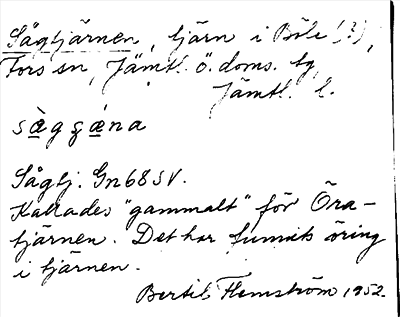 Sågtjärnen, tjärn i Böle (?),
Fors sn, Jämtl. ö. doms. tg,
Jämtl. l.
Sågtj. Gn68SV.
Kallades "gammalt" för Öra-
tjärnen. Det har funnits öring
i tjärnen.
Bertil Flemström 1952.